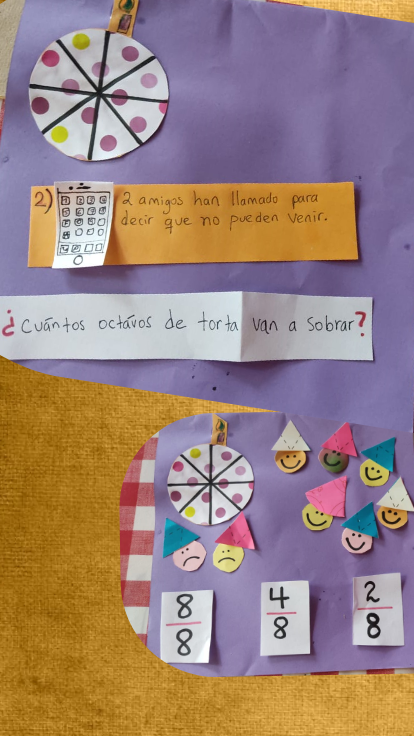 2) 2 amigos han llamado para
decir que no pueden venir.
¿Cuántos octávos de torta van a sobrar?
8/8
4/8
2/8